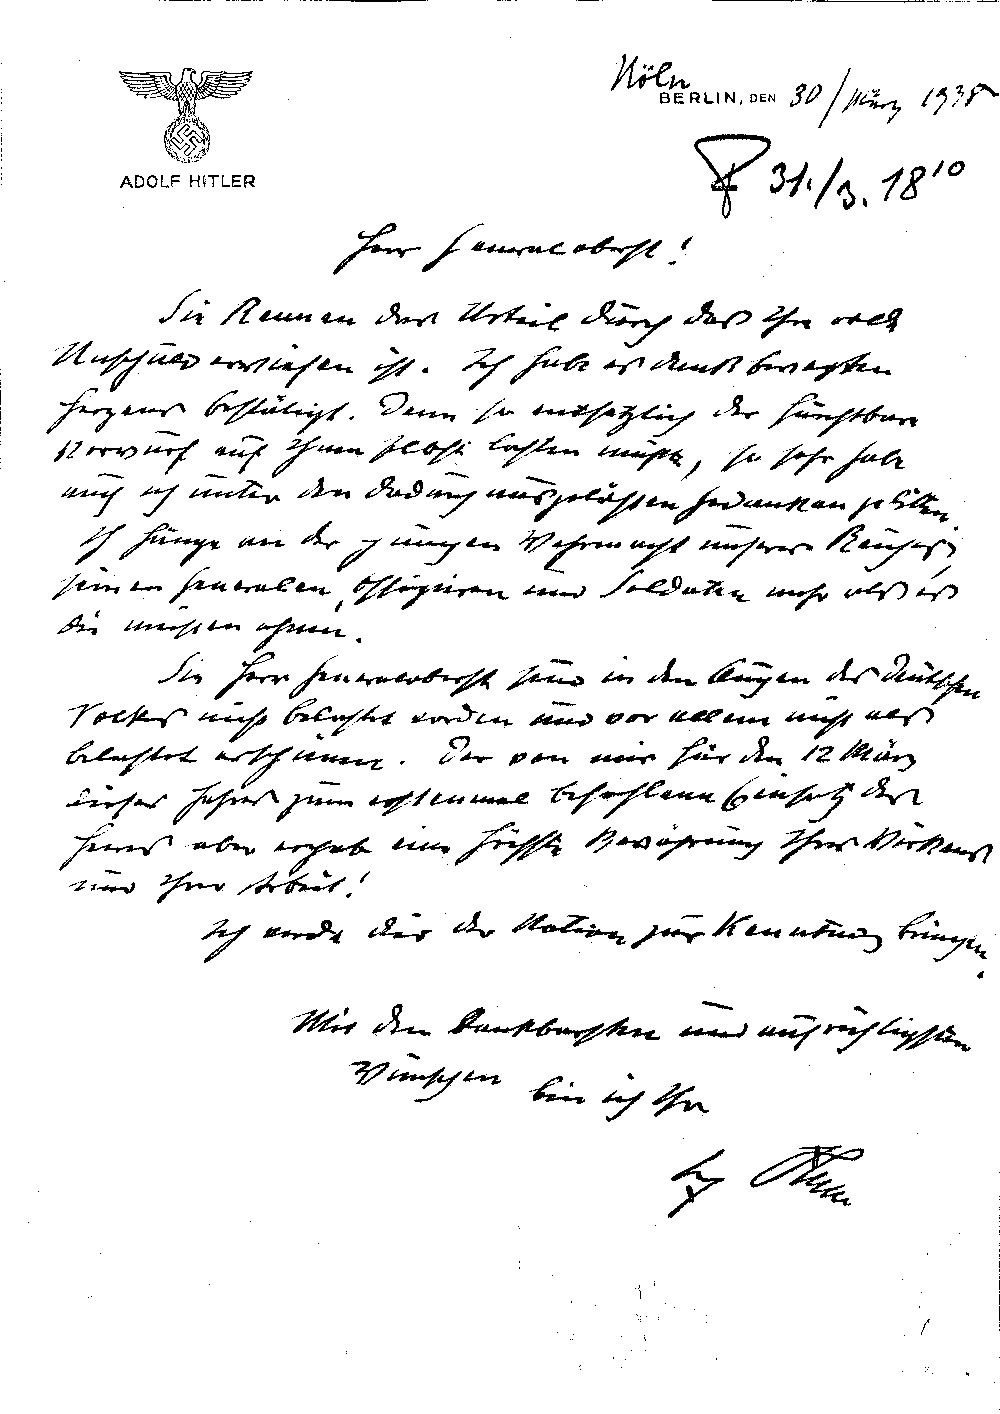 Köln
BERLIN, DEN 30/März 1938
ADOLF HITLER
31./3. 18¹⁰
Herr Generaloberst!
Sie kennen das Urteil durch das Ihre volle
Unschuld erwiesen ist. Ich habe es dankbewegten
Herzens bestätigt. Denn so entsetzlich der furchtbare
Vorwurf auf Ihnen selbst lasten mußte, so sehr habe
auch ich unter den dadurch ausgelösten Gedanken gelitten.
Ich hänge an der jungen Wehrmacht unseres Reiches,
seinen Generalen, Offizieren und Soldaten mehr als es
die meisten ahnen.
Sie Herr Generaloberst sind in den Augen des Deutschen
Volkes nicht belastet worden und vor allem nicht als
belastet erschienen. Der von mir für den 12 März
dieses Jahres zum erstenmal befohlene Einsatz des
Heeres aber ergab eine höchste Bewährung Ihres Wirkens
und Ihrer Arbeit!
Ich werde dies der Nation zur Kenntnis bringen.
Mit den dankbarsten und aufrichtigsten
Wünschen bin ich Ihr